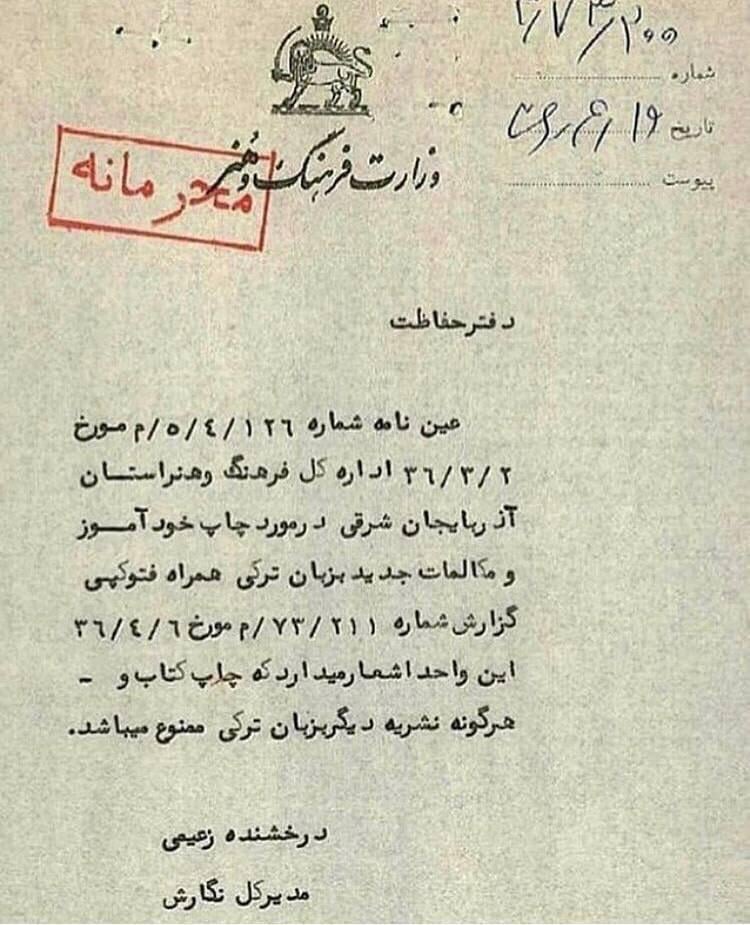 شماره
تاریخ ۱۹/۴/
پیوست
وزارت فرهنگ و هنر
محرمانه
دفتر حفاظت
عین نامه شماره ۱۲۶/۴/۵/م مورخ
۳۶/۳/۲ اداره کل فرهنگ و هنر استــان
آذربایجان شرقی در مورد چاپ خود آمــوز
و مکالمات جدید بزبان ترکی همراه فتوکپی
گزارش شماره ۷۳/۲۱۱/م مورخ ۳۶/۴/۶
این واحد اشعار میدارد که چاپ کتاب و -
هرگونه نشریه دیگر بزبان ترکی ممنوع میباشد.
درخشنده زعیمی
مدیر کل نگارش